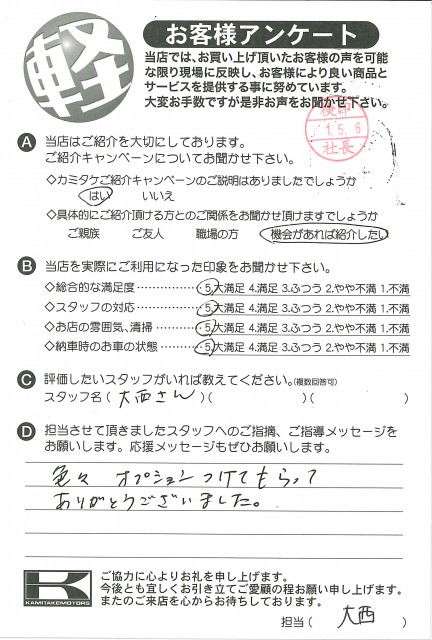 軽
お客様アンケート
当店では、お買い上げ頂いたお客様の声を可能
な限り現場に反映し、お客様により良い商品と
サービスを提供する事に努めています。
大変お手数ですが是非お声をお聞かせ下さい。
1.5.6
社長
A 当店はご紹介を大切にしております。
ご紹介キャンペーンについてお聞かせ下さい。
◇カミタケご紹介キャンペーンのご説明はありましたでしょうか
はい いいえ
◇具体的にご紹介頂ける方とのご関係をお聞かせ頂けますでしょうか
ご親族 ご友人 職場の方 機会があれば紹介したい
B 当店を実際にご利用になった印象をお聞かせ下さい。
◇総合的な満足度……………5.大満足 4.満足 3.ふつう 2.やや不満 1.不満
◇スタッフの対応……………5.大満足 4.満足 3.ふつう 2.やや不満 1.不満
◇お店の雰囲気、清掃…………5.大満足 4.満足 3.ふつう 2.やや不満 1.不満
◇納車時のお車の状態…………5.大満足 4.満足 3.ふつう 2.やや不満 1.不満
C 評価したいスタッフがいれば教えてください。(複数回答可)
スタッフ名(大西さん)( )( )
D 担当させて頂きましたスタッフへのご指摘、ご指導メッセージを
お願いします。応援メッセージもぜひお願いします。
色々 オプションつけてもらって
ありがとうございました。
K
KAMITAKEMOTORS
ご協力に心よりお礼を申し上げます。
今後とも宜しくお引き立てご愛顧の程お願い申し上げます。
またのご来店を心からお待ちしております。
担当( 大西 )